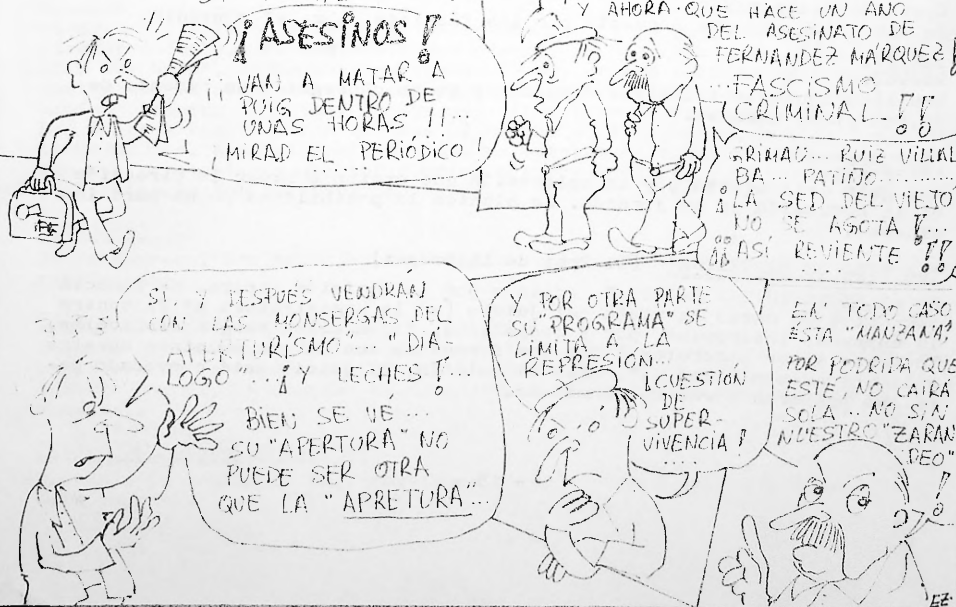 ¡ASESINOS!
¡¡ VAN A MATAR A
PUIG DENTRO DE
UNAS HORAS !!...
¡MIRAD EL PERIÓDICO!
......
Y AHORA QUE HACE UN AÑO
DEL ASESINATO DE
FERNANDEZ MÁRQUEZ!
...FASCISMO
CRIMINAL!!
GRIMAU... RUIZ VILLAL
BA... PATIÑO.........
¡LA SED DEL VIEJO
NO SE AGOTA!...
¡¡ASÍ REVIENTE!!
.....
SI. Y DESPUÉS VENDRÁN
CON LAS MONSERGAS DEL
APERTURISMO"... "DIÁ-
LOGO"...¡Y LECHES!...
BIEN SE VÉ...
SU "APERTURA" NO
PUEDE SER OTRA
QUE LA "APRETURA"...
Y POR OTRA PARTE
SU "PROGRAMA" SE
LIMITA A LA
REPRESIÓN...
¡CUESTIÓN
DE
SUPER-
VIVENCIA!
.....
EN TODO CASO
ÉSTA "MANZANA",
POR PODRIDA QUE
ESTÉ, NO CAIRÁ
SOLA... NO SIN
NUESTRO "ZARAN
DEO"!
EZ.